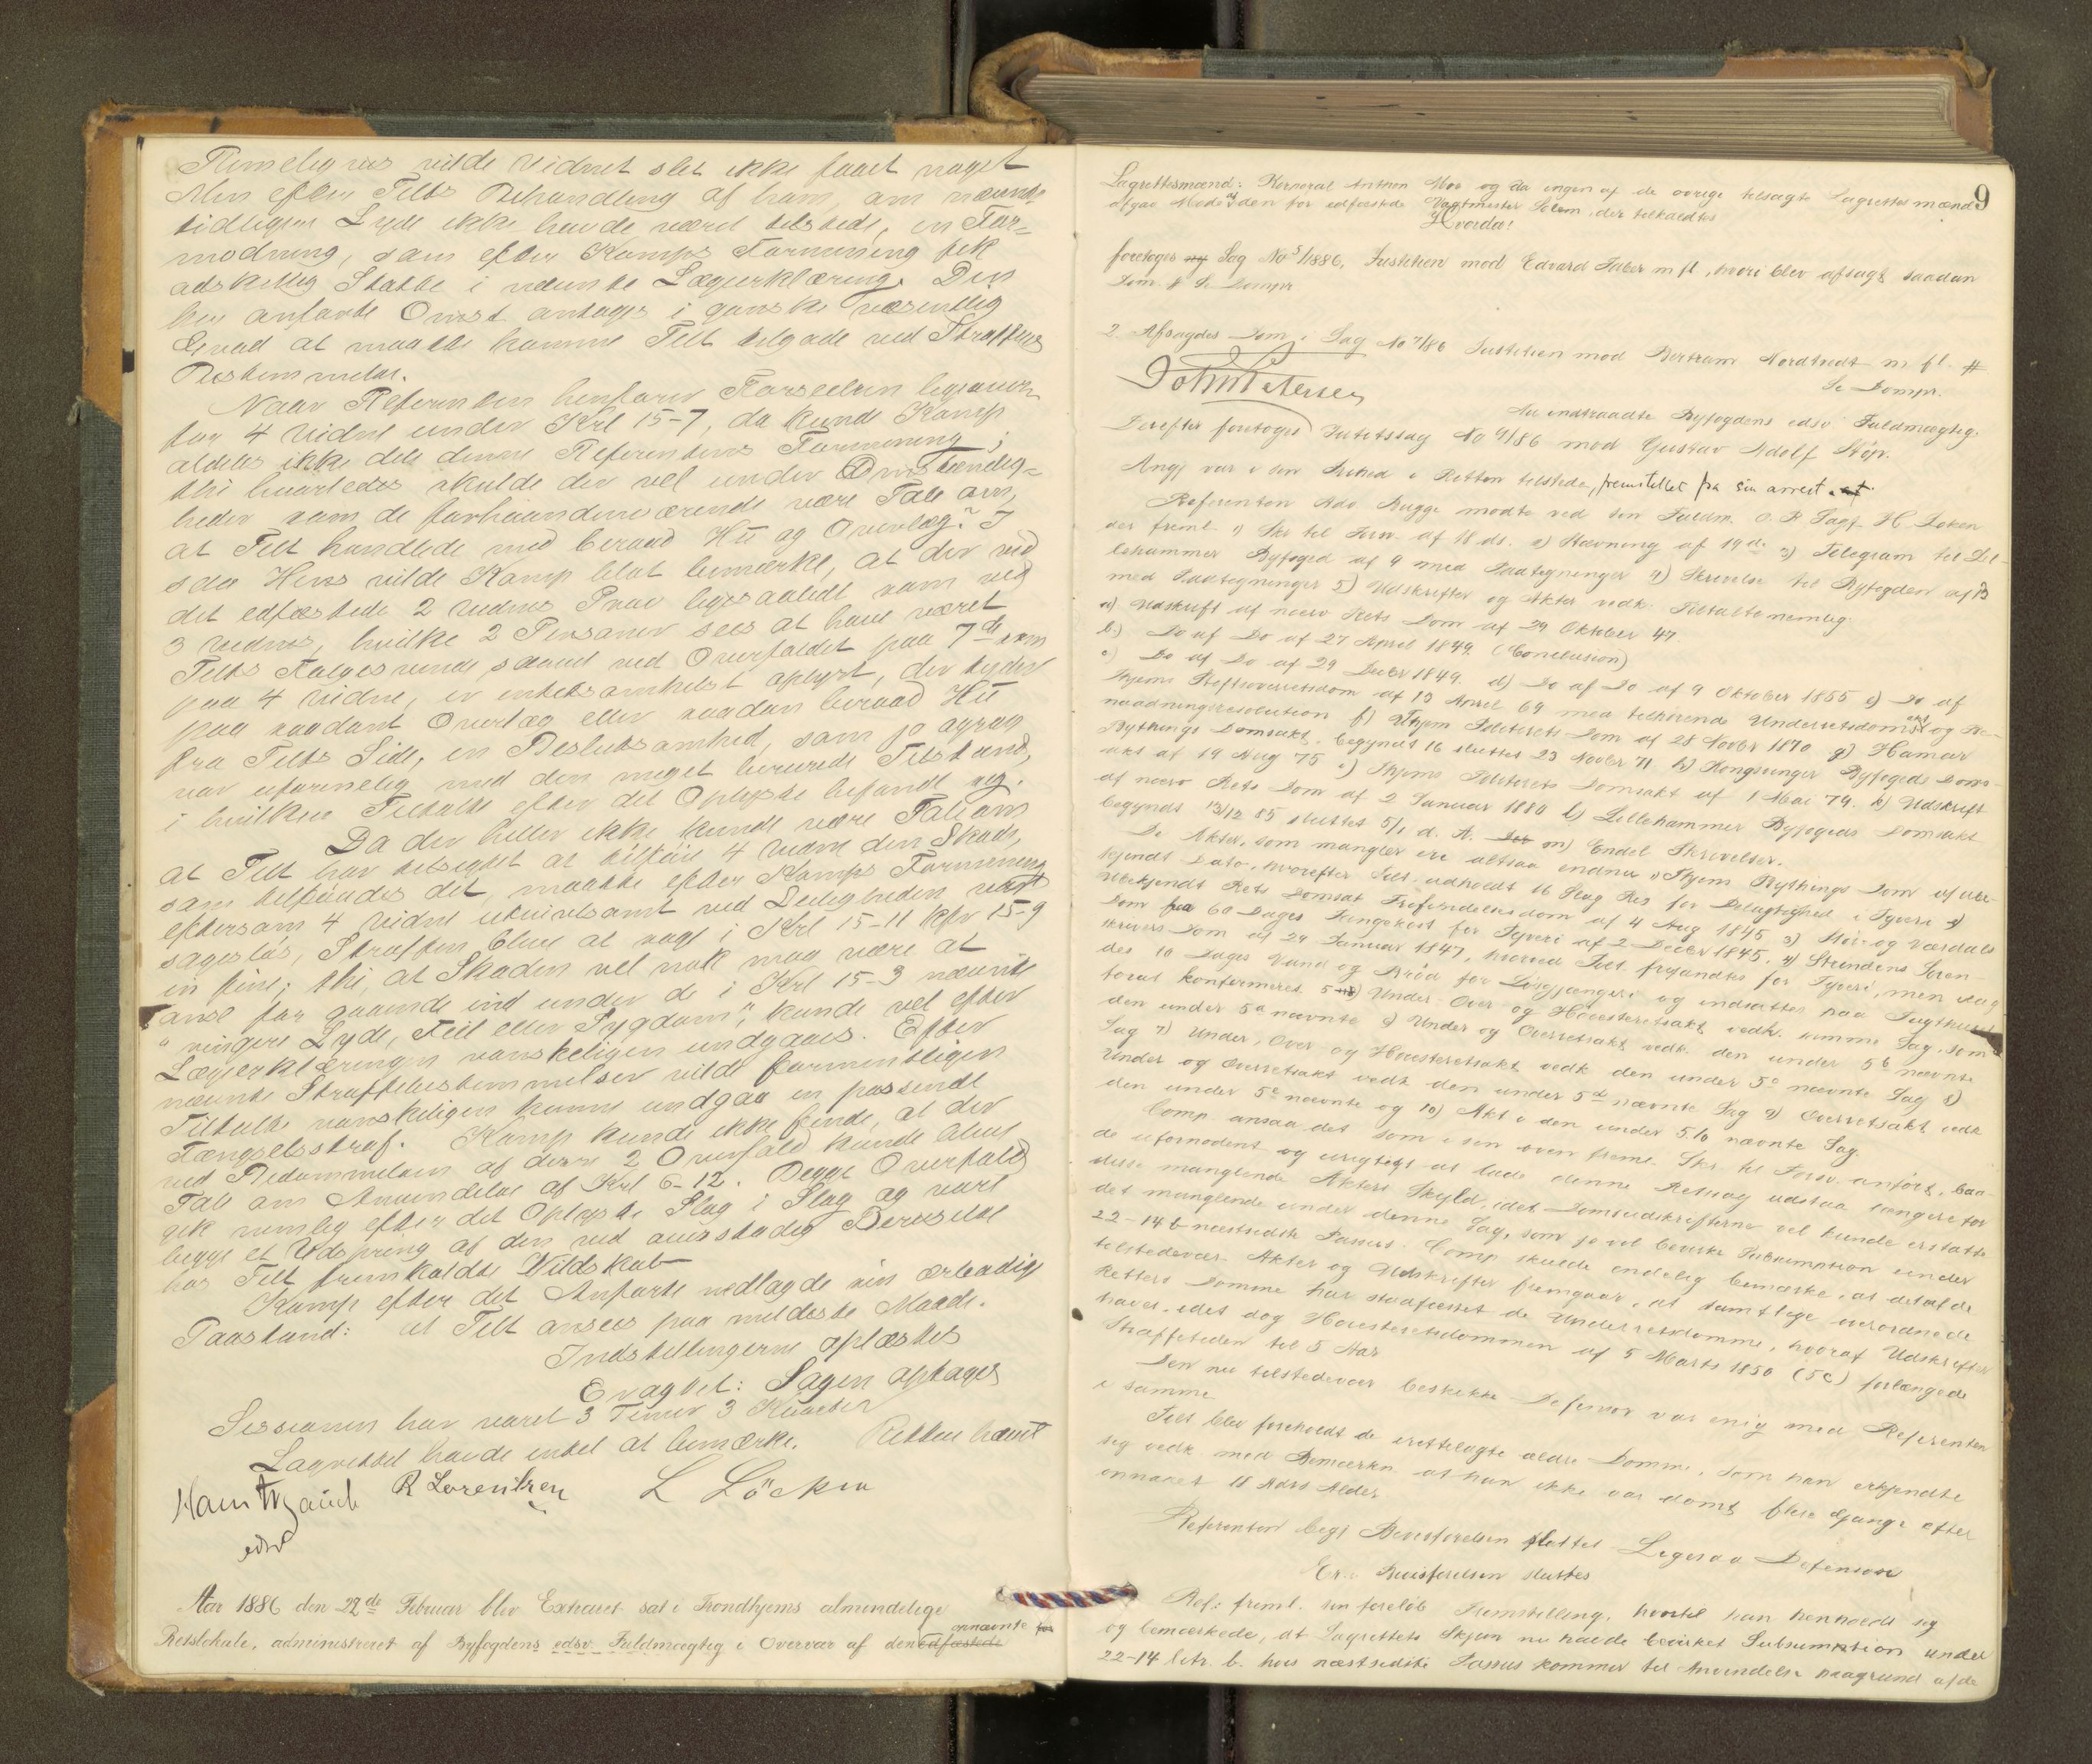 Rimeligvis vilde Vidnet slet ikke faaet noget
Men efter Tilts Behandling af ham, om nævnte
tidligere Lyde ikke havde været tilstede, en For-
modning, som efter Kamps Formening fik
adskillig Støtte i nævnte Lægeerklæring. Den
her anførte Omst antages i ganske væsentlig
Grad at maatte komme Tilt tilgode ved Straffens
Bestemmelse.
Naar Referenten henfører Forseelsen ligeover
for 4 Vidne under Krl 15-7, da kunde Kamp
aldeles ikke dele denne Referentens Formening;
thi hvorledes skulde der vel under Omstændig-
heder som de forhaandenværende være Tale om,
at Tilt handlede med beraad Hu og Overlæg? I
saa Hens vilde Kamp blot bemærke, at der ved
det edfæstede 2 Vidnes Prov ligesaalidt som ved
3 Vidnes, hvilke 2 Personer sees at have været
Tilts Følgesvende saavel ved Overfaldet paa 7de som
paa 4 Vidne, er intetsomhelst oplyst, der tyder
paa saadant Overlæg eller saadan beraad Hu
fra Tilts Side, en Beslutsomhed, som jo ogsaa
var uforenelig med den meget berusede Tilstand,
i hvilken Tiltalte efter det Oplyste befandt sig.
Da der heller ikke kunde være Tale om
at Tilt har tilsigtet at tilføie 4 Vidne den Skade,
som tilføiedes det, maatte efter Kamps Formening
eftersom 4 Vidne utvivlsomt ved Leiligheden var
sagesløs, Straffen blive at søge i Krl 15-11 kfr 15-9
in fine; thi, at Skaden vel nok maa være at
anse for gaaende ind under de i Krl 15-3 nævnte
"ringere Lyde, Feil eller Sygdom", kunde vel efter
Lægeerklæringen vanskeligen undgaaes. Efter
nævnte Straffelovsbestemmelser vilde formentligen
Tiltalte vanskeligen kunne undgaa en passende
Fængselsstraf. Kamp kunde ikke finde, at der
ved Bedømmelsen af disse 2 Overfald kunde blive
Tale om Anvendelse af Krl 6-12. Begge Overfald
gik nemlig efter det Oplyste Slag i Slag og vare
begge et Udspring af den ved
hos Tilt fremkaldte Vildskab
Kamp efter det Anførte nedlagde sin ærbødige
Paastand: at Tilt ansees paa mildeste Maade.
Indstillingerne oplæstes
Eragtet: Sagen optages
Sessionen har varet 3 Timer 3 Kvarter
Lagrettet havde intet at bemærke. Retten hævet
R Lorentzen L Löcken
edsv
Aar 1886 den 22de Februar blev Extraret sat i Trondhjems almindelige
Retslokale, administreret af Byfogdens edsv. Fuldmægtig i Overvær af den edfæstede opnævnte for
9
Lagrettesmænd: Korporal Anthon Moe og da ingen af de øvrige tilsagte Lagrettesmænd
afgav Møde af den for edfæstede Vagtmester Solem, der tilkaldtes
Hvorda:
foretoges ny Sag No 5/1886, Justitien mod Edvard Faber m fl, hvori blev afsagt saadan
Dom # Se Dompr
2 Afsagdes Dom i Sag No 7/86 Justitien mod Bertram Nordtvedt m fl. #
Se Dompr.
Nu indtraadte Byfogdens edsv Fuldmægtig
Derefter foretoges Justitssag No 9/86 mod Gustav Adolf Støp.
Angj var i sin Frihed i Retten tilstede, fremstillet fra sin arrest
Referenten Adv. Bugge mødte ved sin Fuldm. O. R. Sagf. H Løken
der freml. 1) Skr til Forsv. af 18 ds. 2) Stævning af 19 ds 3) Telegram til Lil-
lehammer Byfoged af 9 med Paategninger 4) Skrivelse til Byfogden af 13
med Paategninger 5) Udskrifter og Akter vedk. Tiltalte nemlig:
a) Udskrift af nærv Rets Dom af 29 Oktober 47
b.) Do af Do af 27 April 1849. (Conclusion)
c) Do af Do af 29 Decbr 1849. d) Do af Do af 9 Oktober 1855 e) Do af
Thjems Stiftsoverretsdom af 13 April 69 med tilhørende Underretsdomsakt og Be-
naadningsresolution f) Thjem Politirets Dom af 28 Novbr 1870 g) Hamar
Bythings Domsakt, begyndt 16 sluttet 23 Novbr 71 h) Kongsvinger Byfogeds Doms-
akt af 19 Aug 75 i) Thjems Politirets Domsakt af 1 Mai 79. k) Udskrift
af nærv Rets Dom af 2 Januar 1880 l) Lillehammer Byfogeds Domsakt
begyndt 13/12 85 sluttet 5/1 d. A. m) Endel Skrivelser.
De Akter, som mangler ere altsaa endnu 1) Thjem Bythings Dom af ube-
kjendt Dato, hvorefter Tilt. udholdt 16 Slag Ris for Delagtighed i Tyveri 2)
Ubekjendt Rets Domsat Frifindelsesdom af 4 Aug 1845 3) Stør og Værdals
Dom paa 60 Dages Fangekost for Tyveri af 2 Decbr 1845. 4) Strindens Soren
skrivers Dom af 24 Januar 1847, hvorved Tilt. frifandtes for Tyveri, men idag
des 10 Dages Vand og Brød for Løsgjængeri og indsattes paa Tugthuset
forat konfirmeres 5) Under- Over og Høiesteretsakt vedk. samme Sag, som
den under 5a nævnte 6) Under og Overretsakt vedk. den under 5b nævnte
Sag 7) Under, Over og Høiesteretsakt vedk den under 5c nævnte Sag 8)
Under og Overretsakt vedk den under 5d nævnte Sag 9) Overretsakt vedk
den under 5e nævnte og 10) Akt i den under 5.10 nævnte Sag.
Comp. ansaa det som i sin oven freml. Skr. til Forsv. anført, baa-
de ufornødent og urigtigt at lade denne Retssag udstaa længere for
disse manglende Akters Skyld, idet Domsudskrifterne vel kunde erstatte
det manglende under denne Sag, som jo vil bevirke Subsumption under
22-14 b næstsidste Passus. Comp skulde endelig bemærke, at det af de
tilstedevær. Akter og Udskrifter fremgaar, at samtlige overordnede
Retters Domme har stadfæstet de Underretsdomme, hvoraf Udskrifter
haves, idet dog Høiesteretsdommen af 5 Marts 1850 (5c) forlængede
Straffetiden til 5 Aar
Den nu tilstedevær beskikke Defensor var enig med Referenten
i samme
Tilt blev foreholdt de irettelagte ældre Domme, som han erkjendte
sig vedk. med Bemærkn. at han ikke var dømt flere Gange efter
opnaaet 18 Aars Alder.
Referenten begj Bevisførelsen sluttet Ligesaa Defensor
Er.: Bevisførelsen sluttes
Ref: freml. sin foreløb Fremstilling, hvortil han henholdt sig
og bemærkede, at Lagrettets Skjøn nu havde bevirket Subsumption under
22-14 Litr. b. hvis næstsidste Passus kommer til Anvendelse paagrund af de